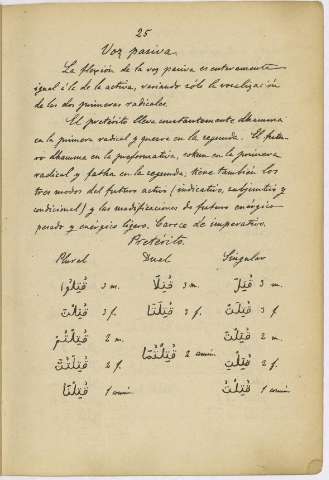 25
Voz pasiva.
La flexión de la voz pasiva es enteramente
igual á la de la activa, variando sólo la vocalización
de las dos primeras radicales.
El pretérito lleva constantemente dhamma
en la primera radical y quesra en la segunda. El futu-
ro dhamma en la preformativa, sokun en la primera
radical y fatha en la segunda; tiene también los
tres modos del futuro activo (indicativo, subjuntivo y
condicional) y las modificaciones de futuro enérgico
pesado y enérgico ligero. Carece de imperativo.
Pretérito.
Plural Dual Singular
قُتِلُوا 3 m. قُتِلَا 3 m. قُتِلَ 3 m.
قُتِلْنَ 3 f. قُتِلَتَا 3 f. قُتِلَتْ 3 f.
قُتِلْتُمْ 2 m. قُتِلْتُمَا 2 común. قُتِلْتَ 2 m.
قُتِلْتُنَّ 2 f. قُتِلْتِ 2 f.
قُتِلْنَا 1 común. قُتِلْتُ 1 común.